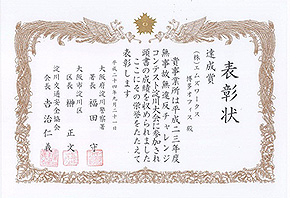 表彰状
達成賞
(株)エムズワークス
博多オフィス 殿
貴事業所は平成二三年度
無事故無違反チャレンジ
コンテスト淀川大会に参加され
頭書の成績を収められました
ここにその栄誉をたたえて
表彰します
平成二十四年六月二十一日
大阪府淀川警察署
署長 福田 守
大阪市淀川区
区長 榊 正文
淀川交通安全協会
会長 吉治仁義